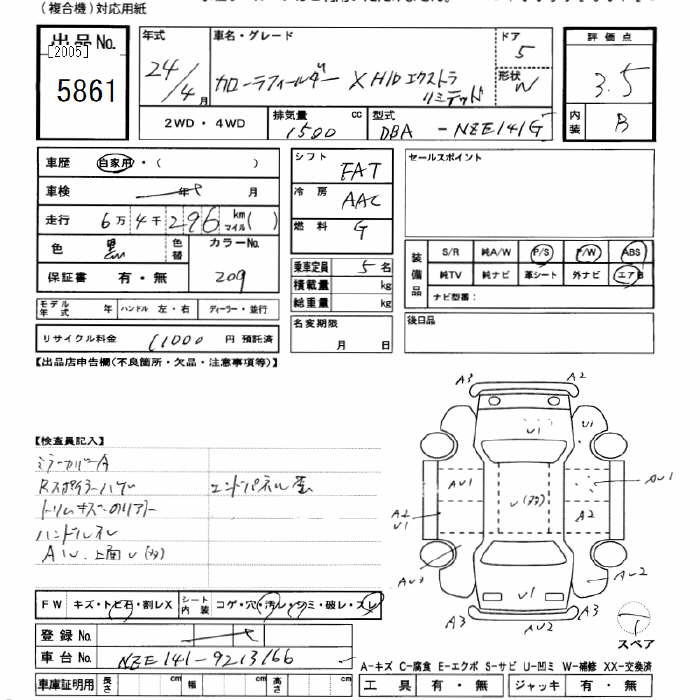 (複合機)対応用紙
出品No.
[2005]
5861
年式
24/4月
車名・グレード
カローラフィールダー X HID エクストラ
リミテッド
ドア
5
形状
W
評価点
3.5
内装
B
2WD・4WD
排気量
1500 cc
型式
DBA - NZE141G
車歴 自家用・( )
車検 年 月
走行 6万4千296 km マイル( )
色 黒 色替 カラーNo.
209
保証書 有・無
モデル年式 年 ハンドル 左・右 ディーラー・並行
リサイクル料金 11000 円 預託済
シフト FAT
冷房 AAC
燃料 G
乗車定員 5 名
積載量 kg
総重量 kg
名変期限
月 日
セールスポイント
装備品
S/R 純A/W P/S P/W ABS
純TV 純ナビ 革シート 外ナビ エアB
ナビ型番:
後日品
【出品店申告欄(不良箇所・欠品・注意事項等)】
【検査員記入】
ミラーカバーA
Rスポイラーハゲ
エンドパネル歪
トリムキズ
ハンドルスレ
A3 A2
U1 U1
AU1 AU1
A2
U1
A2
AU3 AU2
U1
A3 AU2 A3
スペア
FW キズ・トビ石・割レX シート内装 コゲ・穴・汚レ・シミ・破レ・スレ
登録No.
車台No. NZE141-9213166
車庫証明用 長さ cm 幅 cm 高さ cm
A-キズ C-腐食 E-エクボ S-サビ U-凹ミ W-補修 XX-交換済
工具 有・無 ジャッキ 有・無